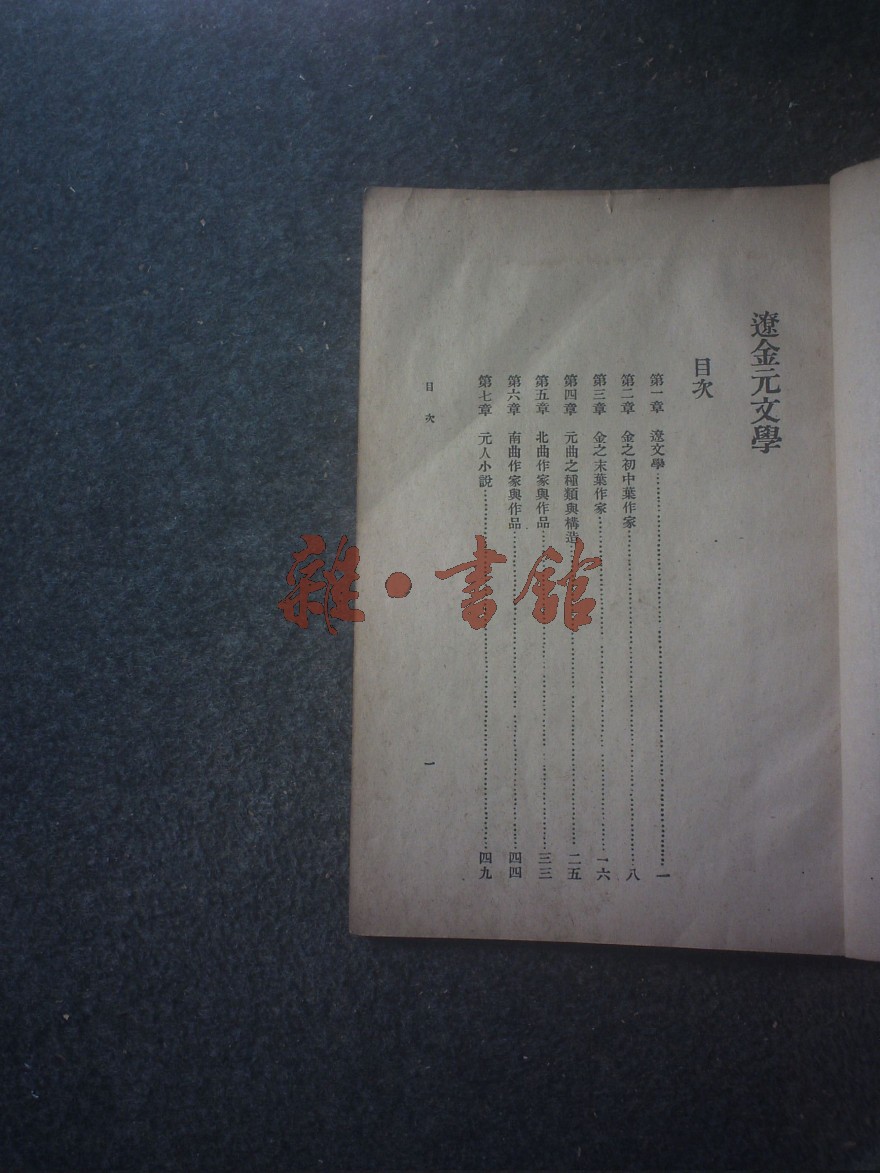 遼金元文學
目次
第一章 遼文學…………一
第二章 金之初中葉作家…………八
第三章 金之末葉作家…………一六
第四章 元曲之種類與構造…………二五
第五章 北曲作家與作品…………三三
第六章 南曲作家與作品…………四四
第七章 元人小說…………四九
目次 一
雜·書館